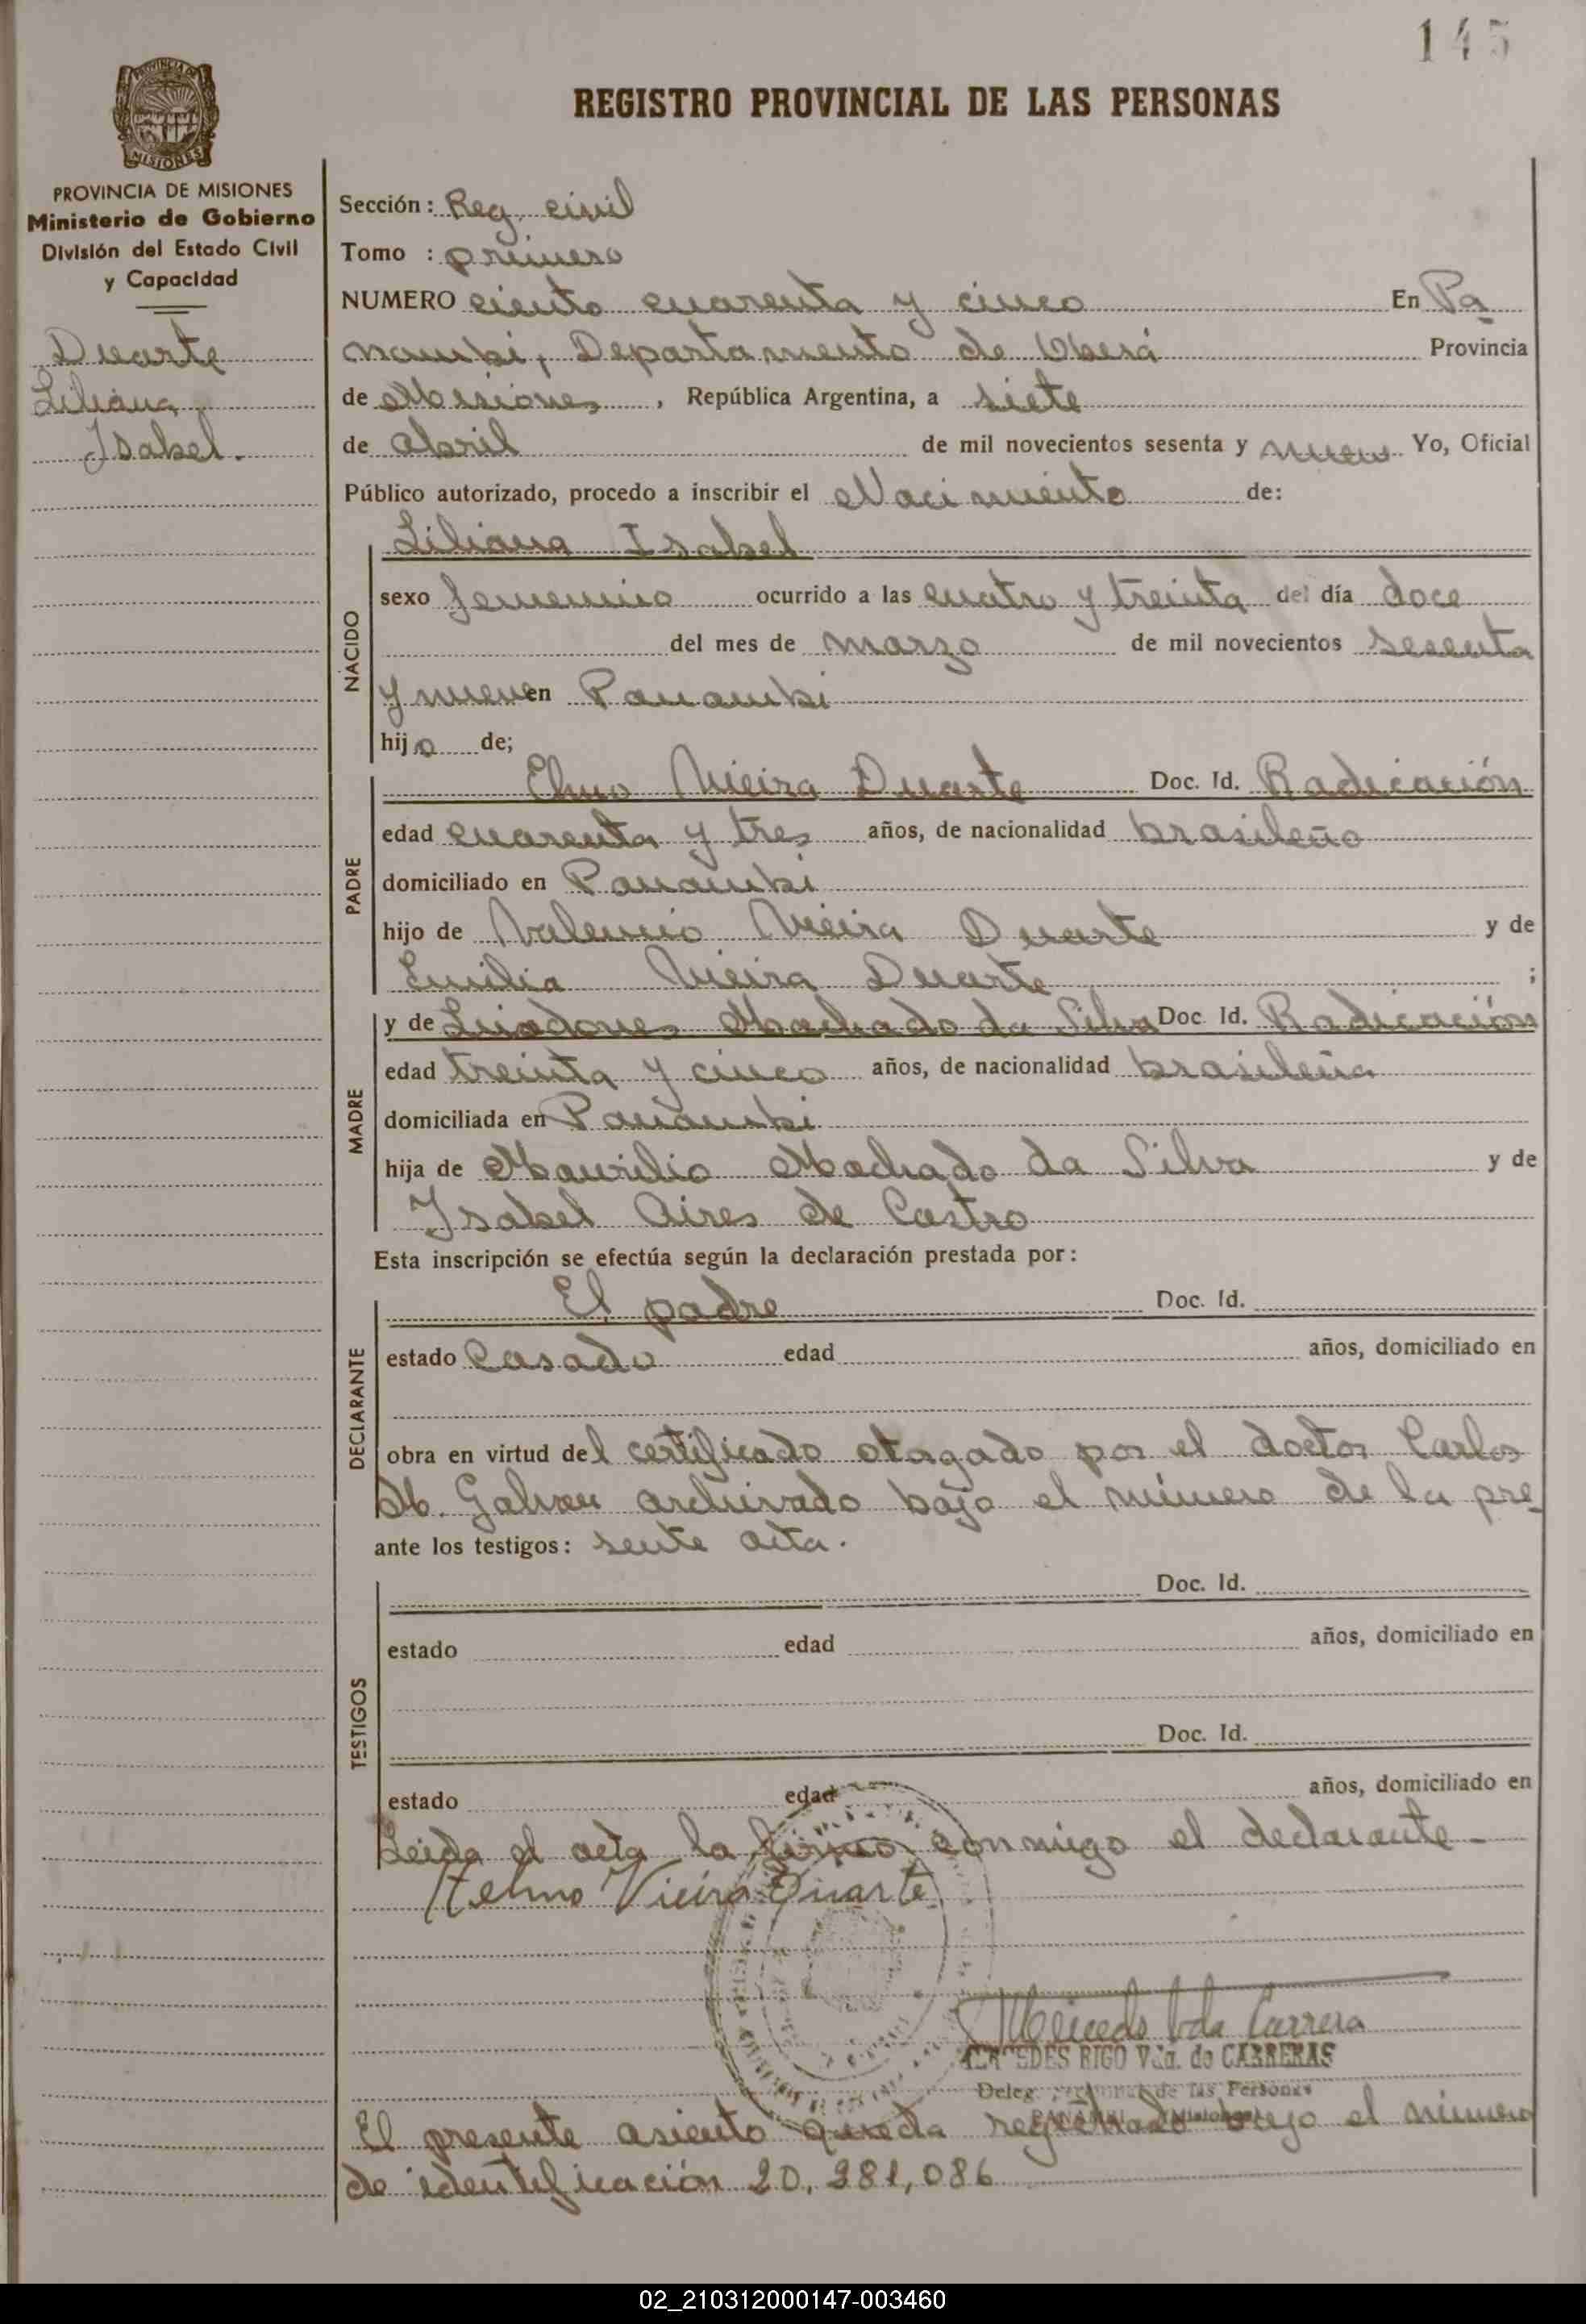 145
REGISTRO PROVINCIAL DE LAS PERSONAS
MISIONES
PROVINCIA DE MISIONES
Ministerio de Gobierno
División del Estado Civil
y Capacidad
Duarte
Liliana
Isabel.
Sección: Reg. civil
Tomo : primero
NUMERO ciento cuarenta y cinco En Pa
nambi, Departamento de Oberá Provincia
de Misiones, República Argentina, a siete
de Abril de mil novecientos sesenta y nueve Yo, Oficial
Público autorizado, procedo a inscribir el Nacimiento de:
NACIDO
Liliana Isabel
sexo femenino ocurrido a las cuatro y treinta del día doce
del mes de marzo de mil novecientos sesenta
y nueve en Panambi
hija de;
PADRE
Elmo Vieira Duarte Doc. Id. Radicación
edad cuarenta y tres años, de nacionalidad brasileño
domiciliado en Panambi
hijo de Vieira Duarte y de
Emilia Vieira Duarte ;
MADRE
y de Machado da Silva Doc. Id. Radicación
edad treinta y cinco años, de nacionalidad brasileña
domiciliada en Panambi
hija de Maurilio Machado da Silva y de
Isabel Aires de Castro
Esta inscripción se efectúa según la declaración prestada por:
DECLARANTE
El padre Doc. Id.
estado Casado edad años, domiciliado en
obra en virtud del certificado otorgado por el doctor Carlos
M. Galván archivado bajo el número de la pre
ante los testigos: sente acta.
TESTIGOS
Doc. Id.
estado edad años, domiciliado en
Doc. Id.
estado edad años, domiciliado en
Leida el acta la firma conmigo el declarante
Helmo Vieira Duarte
MERCEDES RIGO Vda. de CARRERAS
Deleg. de las Personas
El presente asiento queda registrado bajo el número
de identificación 20.281,086
02_210312000147-003460